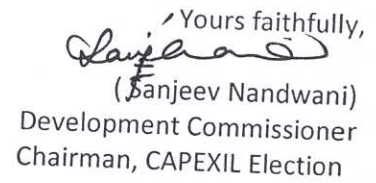 Yours faithfully,
(Sanjeev Nandwani)
Development Commissioner
Chairman, CAPEXIL Election